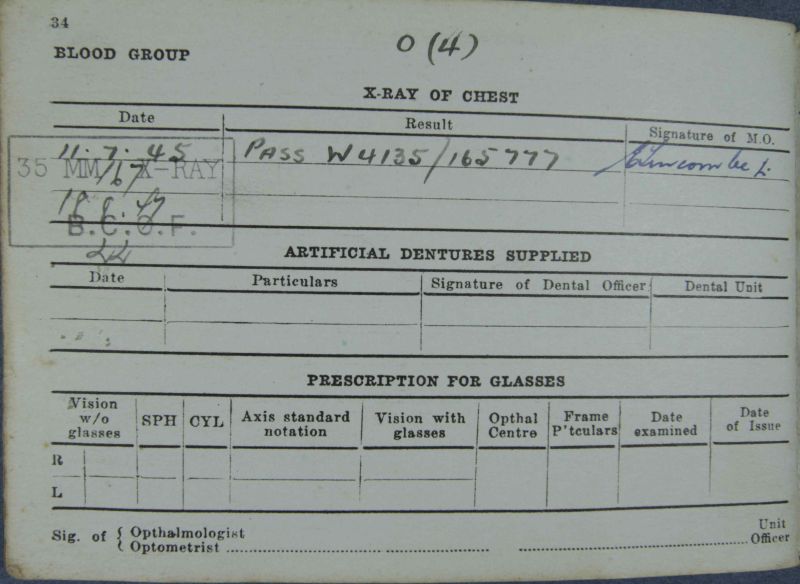 34
BLOOD GROUP O (4)
X-RAY OF CHEST
Date Result Signature of M.O.
11. 7. 45 PASS W4135/165777
35 MM X-RAY
/67
18. 8. 47
B.C.O.F.
ARTIFICIAL DENTURES SUPPLIED
Date Particulars Signature of Dental Officer Dental Unit
PRESCRIPTION FOR GLASSES
Vision w/o glasses SPH CYL Axis standard notation Vision with glasses Opthal Centre Frame P'tculars Date examined Date of Issue
R
L
Sig. of { Opthalmologist Unit
Optometrist Officer